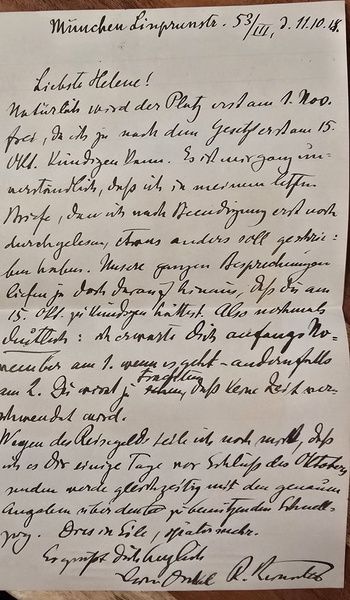 München Linprunstr. 53/III, d. 11.10.48.
Liebste Helene!
Natürlich wird der Platz erst am 1. Nov.
frei, da ich ja nach dem Gesetz erst am 15.
Okt. kündigen kann. Es ist mir ganz un-
verständlich, daß ich in meinem letzten
Briefe, den ich nach Beendigung erst noch
durchgelesen, etwas anders soll geschrie-
ben haben. Unsere ganzen Besprechungen
liefen ja doch darauf hinaus, daß du am
15. Okt. zu kündigen hättest. Also nochmals
deutlich: ich erwarte Dich anfangs No-
vember am 1. wenn es geht - andernfalls
am 2. Du wirst ja trachten, daß keine Zeit ver-
schwendet wird.
Wegen des Reisegelds teile ich noch mit, daß
ich es Dir einige Tage vor Schluß des Oktobers
senden werde gleichzeitig mit den genauen
Angaben über den zu benützenden Schnell-
zug. Dies in Eile, später mehr.
Es grüßt Dich herzlich
Dein Onkel R.